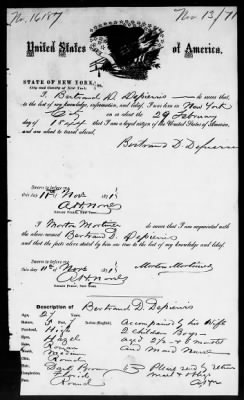 No. 16187
Nov. 13/71
United States of America.
STATE OF NEW YORK,
City and County of New York.
ss.
I Bertrand D. Depierris do swear, that,
to the best of my knowledge, information, and belief, I was born in New York
City on or about the 29 February
day of 1844 that I am a loyal citizen of the United States of America,
and am about to travel abroad,
Bertrand D. Depierris
Sworn to before me
this day 11th Nov 1871
Notary Public, New York.
I Morton Mortimer do swear that I am acquainted
with the above named Bertrand D. Depierris and
that the facts above stated by him are true to the best of my knowledge and belief,
Morton Mortimer
Sworn to before me
this day 11th of Nov 1871
Notary Public, New York.
Description of Bertrand D. Depierris
Age, 27 Years,
Stature, 5 Feet 7 Inches (English) Accompanied by his Wife
Forehead, High 2 children Boys
Eyes, Hazel aged 2 1/2 & 6 months
Nose, Roman and Maid Nurse
Mouth, Medium
Chin, Round
Hair, Dark Brown Please send by return
Complexion, Florid mail &
Face, Round